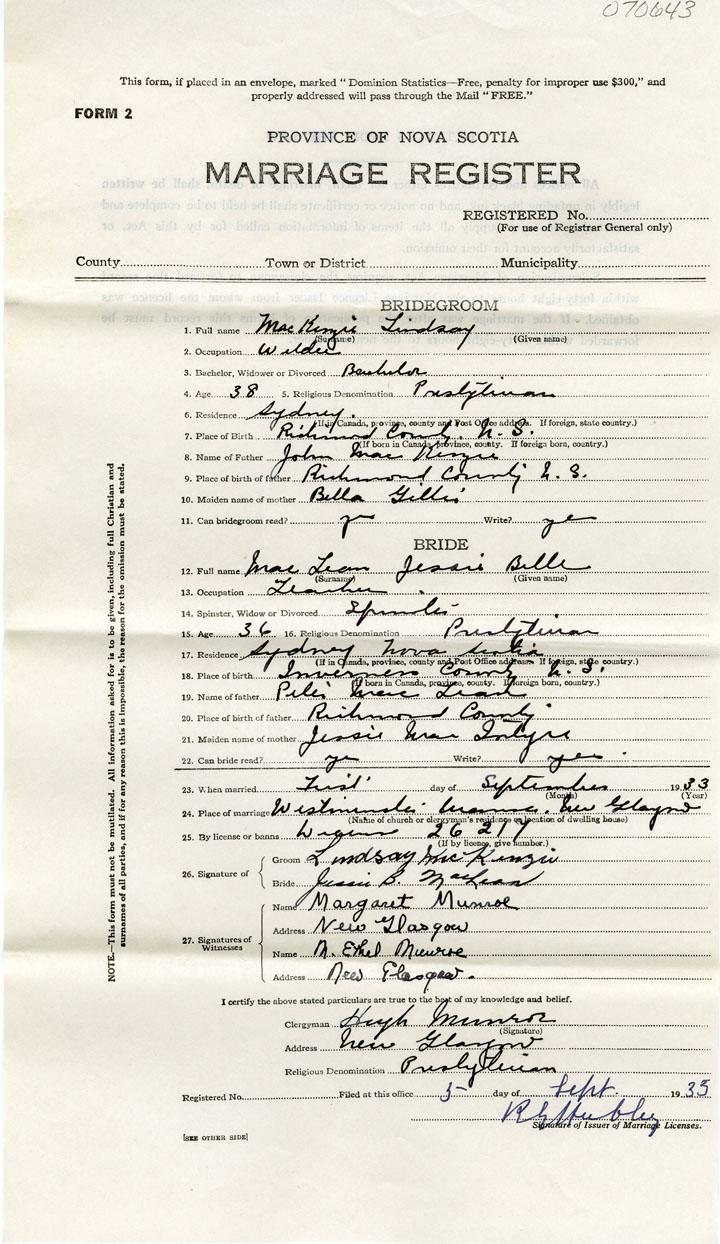 070643
This form, if placed in an envelope, marked " Dominion Statistics—Free, penalty for improper use $300," and
properly addressed will pass through the Mail " FREE."
FORM 2
PROVINCE OF NOVA SCOTIA
MARRIAGE REGISTER
REGISTERED No.
(For use of Registrar General only)
County Town or District Municipality
BRIDEGROOM
1. Full name MacKenzie Lindsay
(Surname) (Given name)
2. Occupation Welder
3. Bachelor, Widower or Divorced Bachelor
4. Age 38 5. Religious Denomination Presbyterian
6. Residence Sydney.
(If in Canada, province, county and Post Office address. If foreign, state country.)
7. Place of Birth Richmond County N. S.
(If born in Canada, province, county. If foreign born, country.)
8. Name of Father John MacKenzie
9. Place of birth of father Richmond County N. S.
10. Maiden name of mother Bella Gillis
11. Can bridegroom read? yes Write? yes
BRIDE
12. Full name MacLean Jessie Belle
(Surname) (Given name)
13. Occupation Teacher
14. Spinster, Widow or Divorced Spinster
15. Age 36 16. Religious Denomination Presbyterian
17. Residence Sydney Nova Scotia
(If in Canada, province, county and Post Office address. If foreign, state country.)
18. Place of birth Inverness County N. S.
(If born in Canada, province, county. If foreign born, country.)
19. Name of father Peter MacLean
20. Place of birth of father Richmond County
21. Maiden name of mother Jessie MacIntyre
22. Can bride read? yes Write? yes
23. When married First day of September 1933
(Month) (Year)
24. Place of marriage Westminster Manse, New Glasgow
(Name of church or clergyman's residence or location of dwelling house)
25. By license or banns 26217
(If by licence, give number.)
26. Signature of
Groom Lindsay MacKenzie
Bride Jessie B. MacLean
27. Signatures of Witnesses
Name Margaret Munroe
Address New Glasgow
Name M. Ethel Munroe
Address New Glasgow.
I certify the above stated particulars are true to the best of my knowledge and belief.
Clergyman Hugh Munroe
(Signature)
Address New Glasgow
Religious Denomination Presbyterian
Registered No. Filed at this office 5 day of Sept 1935
Signature of Issuer of Marriage Licenses.
[SEE OTHER SIDE]
NOTE.—This form must not be mutilated. All information asked for is to be given, including full Christian and
surnames of all parties, and if for any reason this is impossible, the reason for the omission must be stated.